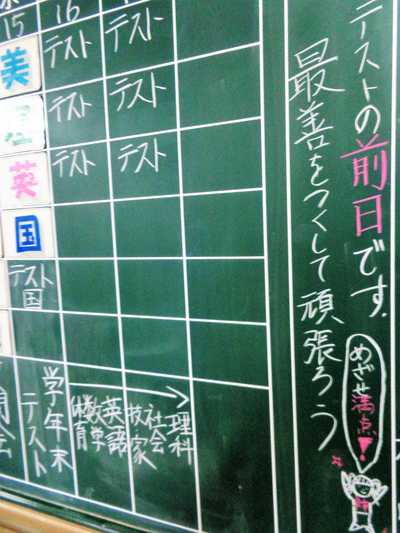 テストの前日です.
最善をつくして頑張ろう
めざせ
満点!
15
16
美
テスト
テスト
理
テスト
テスト
英
テスト
テスト
国
テスト
国
学年末
テスト
体育
数学
英語
技家
社会
理科